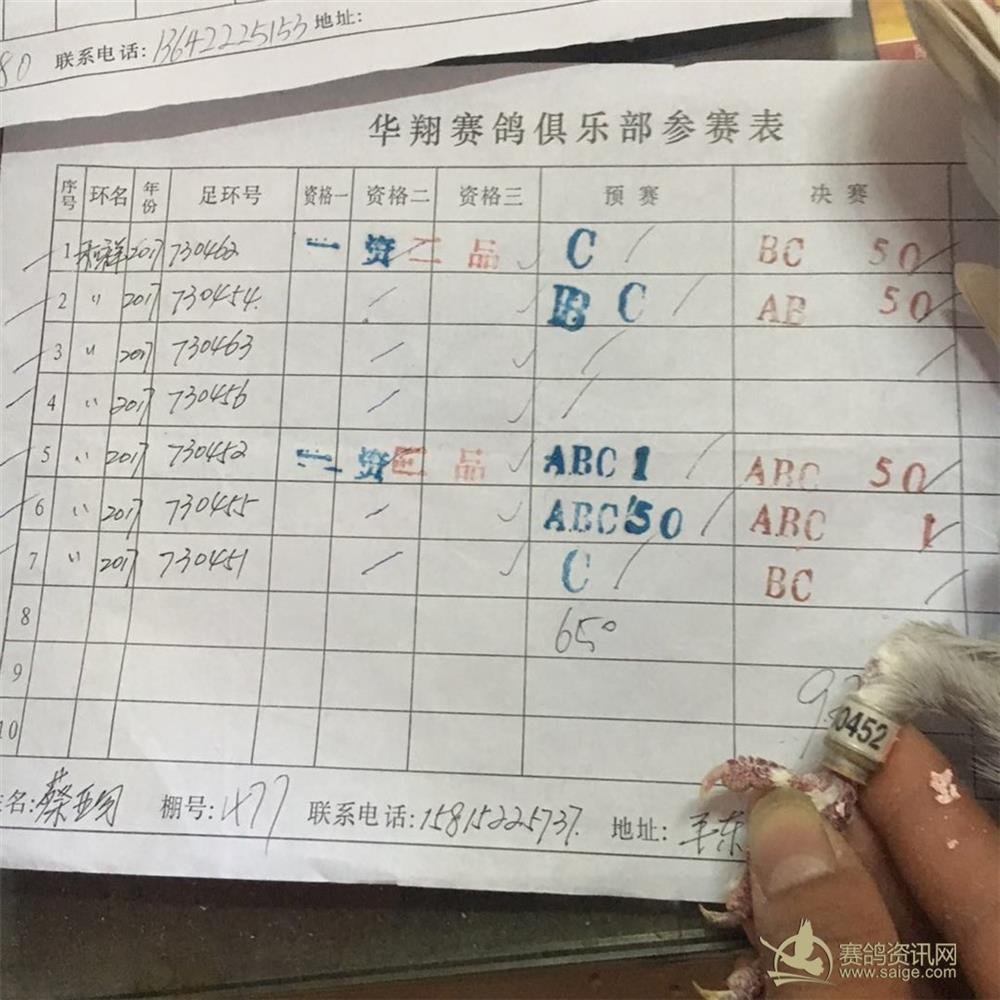 80 联系电话: 13642225153 地址:
华翔赛鸽俱乐部参赛表
序号 环名 年份 足环号 资格一 资格二 资格三 预赛 决赛
1 2017 730462 一资二品 C BC 50
2 〃 2017 730454. B C AB 50
3 〃 2017 730463
4 〃 2017 730456
5 〃 2017 730452 资 品 ABC 1 ABC 50
6 〃 2017 730455 ABC 50 ABC 1
7 〃 2017 730451 C BC
8 650
9
10
名: 蔡 棚号: 477 联系电话: 15815225737. 地址:
0452
赛鸽资讯网
www.saige.com